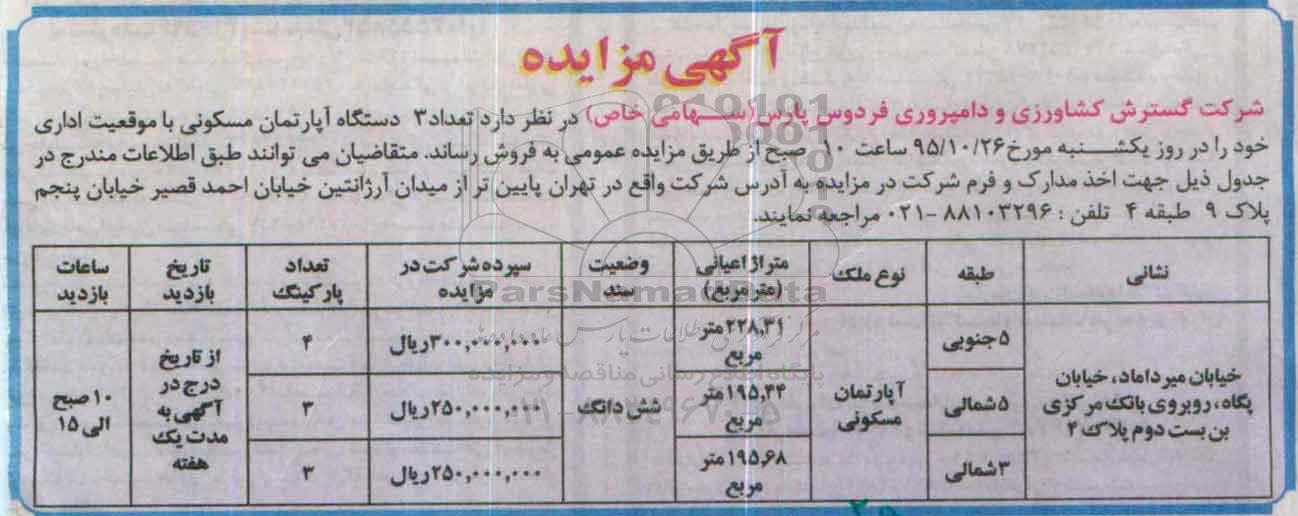 آگهی مزایده
شرکت گسترش کشاورزی و دامپروری فردوس پارس(سهامی خاص) در نظر دارد تعداد ۳ دستگاه آپارتمان مسکونی با موقعیت اداری
خود را در روز یکشنبه مورخ ۹۵/۱۰/۲۶ ساعت ۱۰ صبح از طریق مزایده عمومی به فروش رساند. متقاضیان می توانند طبق اطلاعات مندرج در
جدول ذیل جهت اخذ مدارک و فرم شرکت در مزایده به آدرس شرکت واقع در تهران پایین تر از میدان آرژانتین خیابان احمد قصیر خیابان پنجم
پلاک ۹ طبقه ۴ تلفن : ۸۸۱۰۳۲۹۶ -۰۲۱ مراجعه نمایند.
نشانی طبقه نوع ملک متراژ اعیانی (مترمربع) وضعیت سند سپرده شرکت در مزایده تعداد پارکینگ تاریخ بازدید ساعات بازدید
خیابان میرداماد، خیابان
پگاه، روبروی بانک مرکزی
بن بست دوم پلاک ۴
۵ جنوبی
۵ شمالی
۳ شمالی
آپارتمان
مسکونی
۲۲۸,۳۱ متر
مربع
۱۹۵,۴۴ متر
مربع
۱۹۵,۶۸ متر
مربع
شش دانگ
۳۰۰,۰۰۰,۰۰۰ ریال
۲۵۰,۰۰۰,۰۰۰ ریال
۲۵۰,۰۰۰,۰۰۰ ریال
۴
۳
۳
از تاریخ
درج در
آگهی به
مدت یک
هفته
۱۰ صبح
الی ۱۵
ParsNamadData
پایگاه اطلاع رسانی مناقصه و مزایده